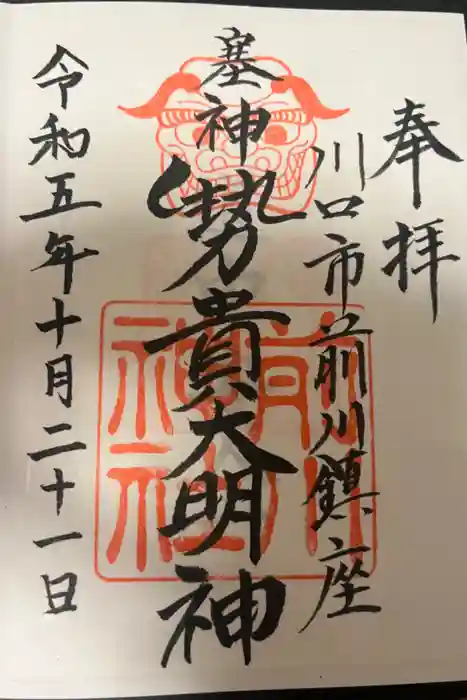 奉拝
川口市前川鎮座
塞神
勢貴大明神
令和五年十月二十一日
前川神社